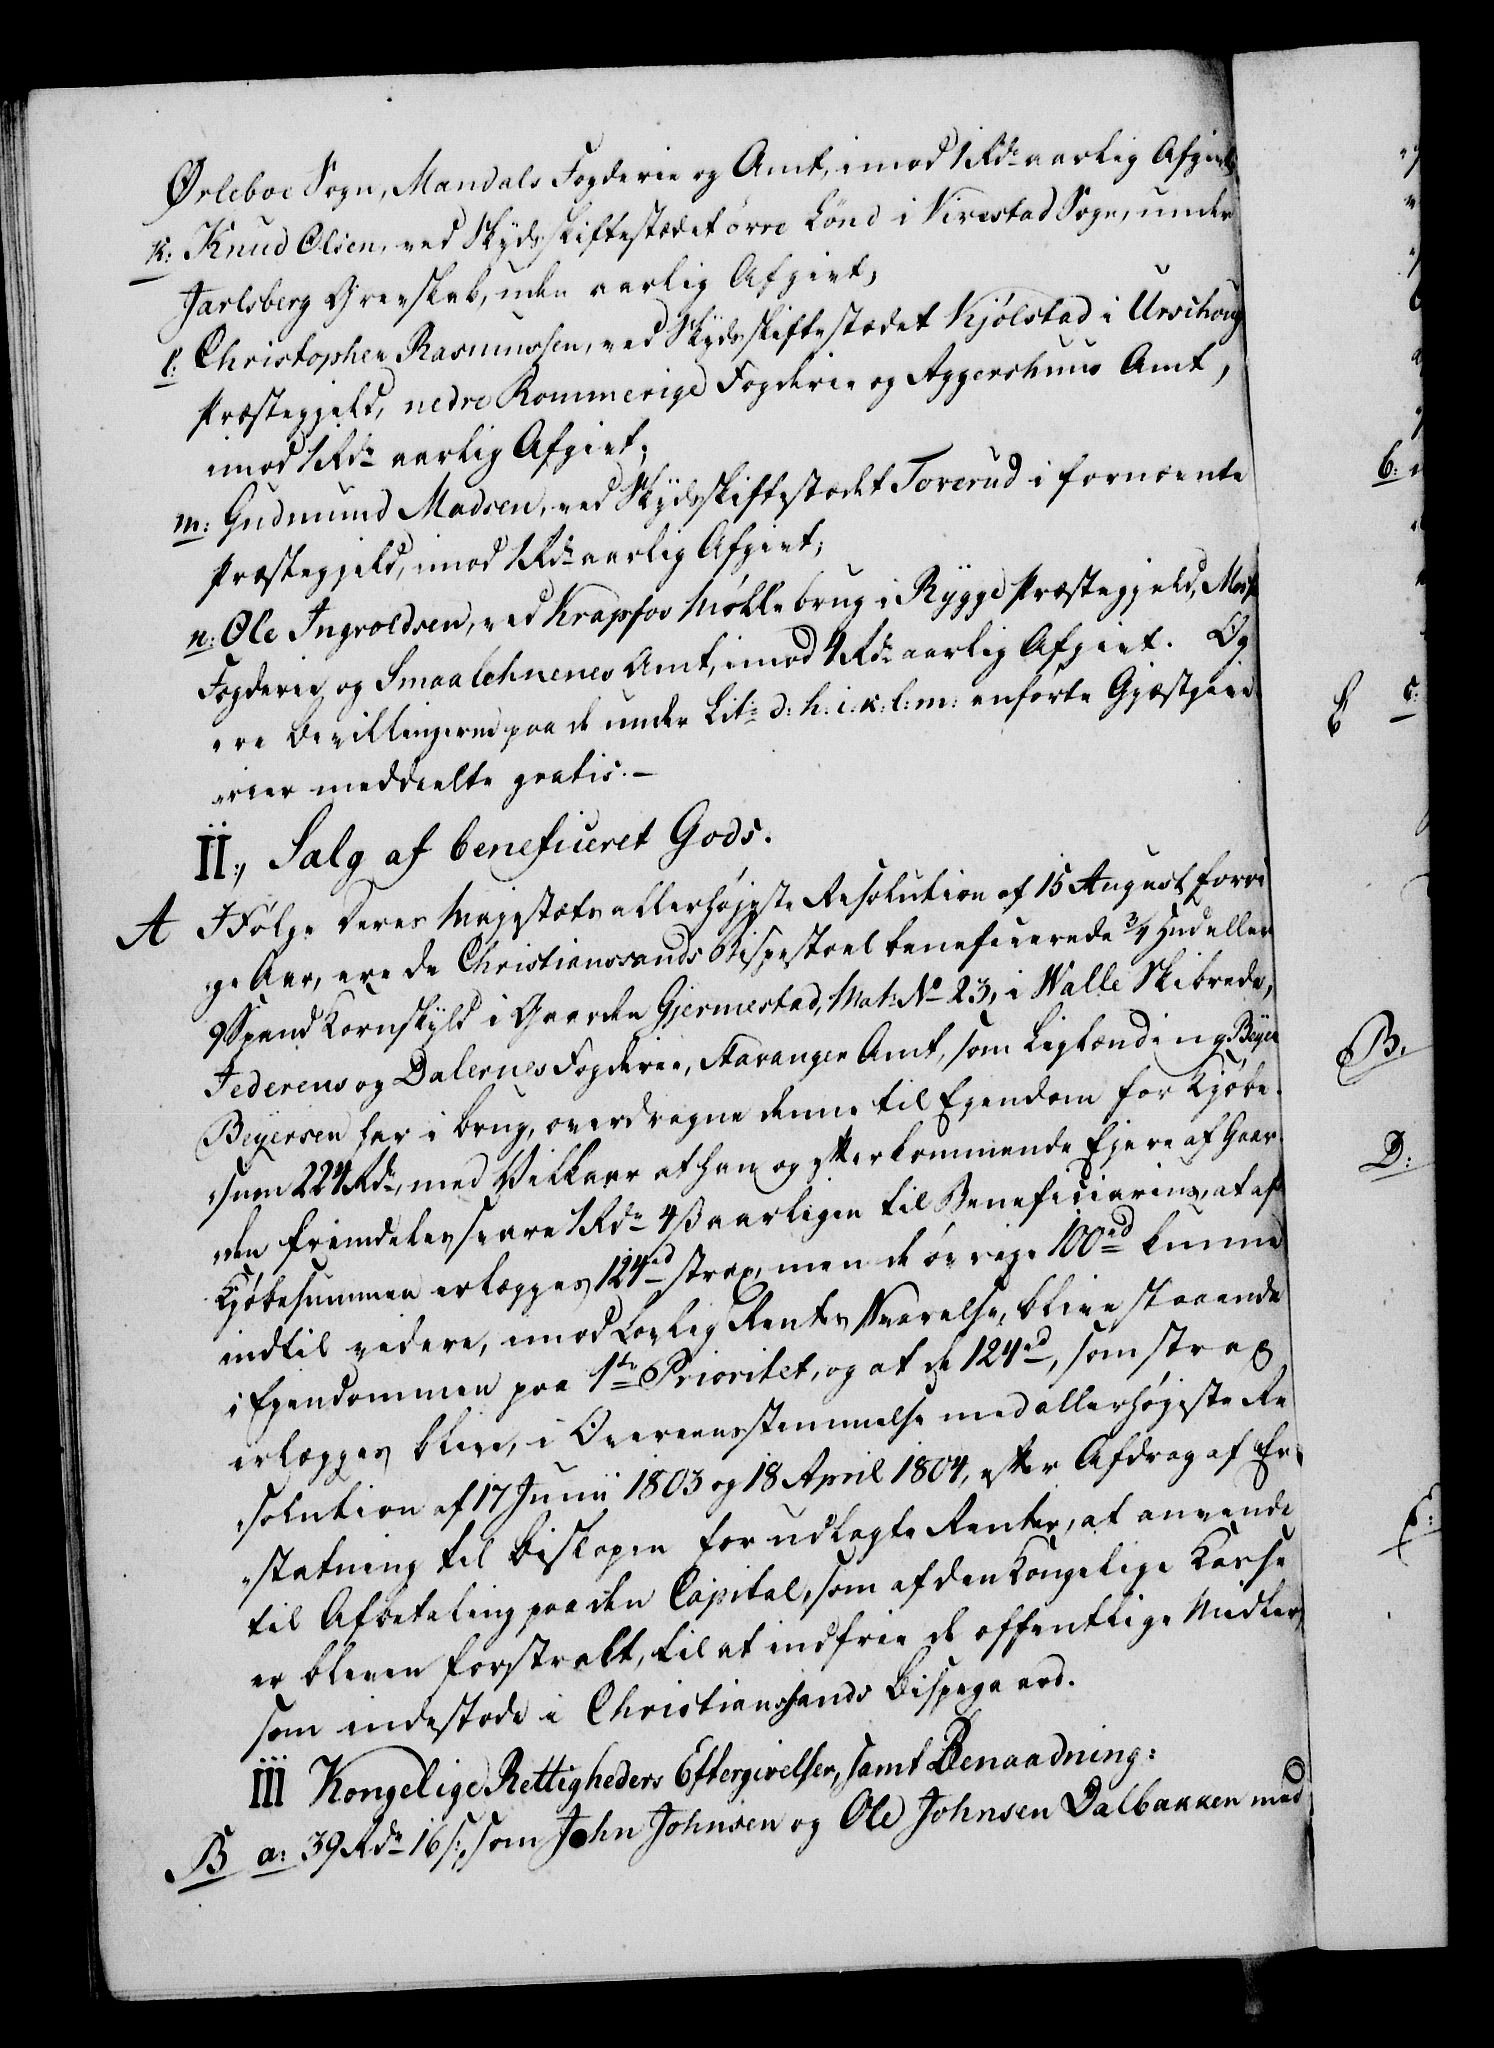 Ørleboe Sogn, Mandals Fogderie og Amt, imod 1 Rdr aarlig Afgivt;
k: Knud Olsen, ved Skydsskiftestædet övre Lönd i Virestad Sogn, under
Jarlsberg Grevskab, uden aarlig Afgivt;
l: Christopher Rasmussen, ved Skydsskiftestædet Kjölstad i Urschoug
Præstegjeld, nedre Rommerige Fogderie og Aggershuus Amt,
imod 1 Rdr aarlig Afgivt;
m: Gudmund Madsen, ved Skydsskiftestædet Toverud i fornævnte
Præstegjeld, imod 1 Rdr aarlig Afgivt;
n: Ole Ingvoldsen, ved Krapfos Möllebrug i Rygge Præstegjeld, Moss
Fogderie og Smaalehnenes Amt, imod 4 Rdr aarlig Afgivt. Og
ere Bevillingerne paa de under Lit: d: h: i: k: l: m: anförte Gjæstgive-
rier meddeelte gratis.-
II:, Salg af beneficeret Gods.
A Ifølge Deres Majestæts allerhøjeste Resolution af 15 August forri-
ge Aar, ere de Christianssands Bispestoel beneficerede 3/4 Hud eller
9 Spand Kornskyld i Gaarden Gjermestad, Mat: No 23, i Walle Skibrede,
Jederens og Dalernes Fogderie, Stavanger Amt, som Leglænding Beyer
Beyersen har i brug, overdragne denne til Ejendom for Kjöbe-
sum 224 Rdr, med Vilkaar at han og efterkommende Ejere af Gaar-
den fremdeles svare 1 Rdr 4 ß aarligen til Beneficiarius, at af
Kjöbesummen erlægges 124 rd strax, men de övrige 100 rd kunne
indtil videre, imod Lovlig Renters Svarelse, blive staaende
i Ejendommen paa 1te Prioritet, og at de 124 rd, som strax
erlægges blive, i Overeensstemmelse med allerhøjeste Re-
solution af 17 Junii 1803 og 18 April 1804, efter Afdrag af Er-
statning til Biskopen for udlagte Renter, at anvende
til Afbetaling paa den Capital, som af den Kongelige Kasse
er bleven forstrakt, til at indfrie de offentlige Midler,
som indestode i Christianssands Bispegaard.
III Kongelige Rettigheders Eftergivelser, samt Benaadning:
B a: 39 Rdr 16 s:, som John Johnsen og Ole Johnsen Dalbakken med
b:
E
c:
B.
D:
E: